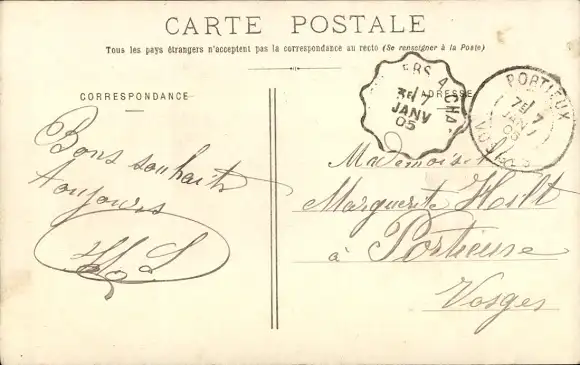 CARTE POSTALE
Tous les pays étrangers n'acceptent pas la correspondance au recto (Se renseigner à la Poste)
CORRESPONDANCE
ADRESSE
Bons souhaits
toujours
3E 7
JANV
05
PORTIEUX
7E 7
JANV
05
VOSGES
Mademoiselle
Marguerite Holt
à Portieux
Vosges